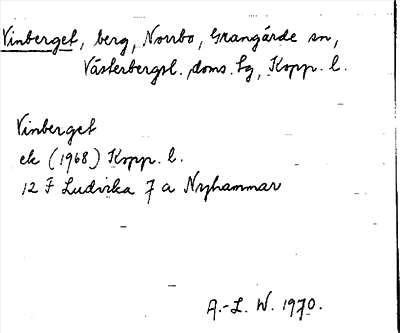 Vinberget, berg, Norrbo, Grangärde sn,
Västerbergsl. doms. tg, Kopp. l.
Vinberget
ek (1968) Kopp. l.
12 F Ludvika 7 a Nyhammar
A.-L. W. 1970.